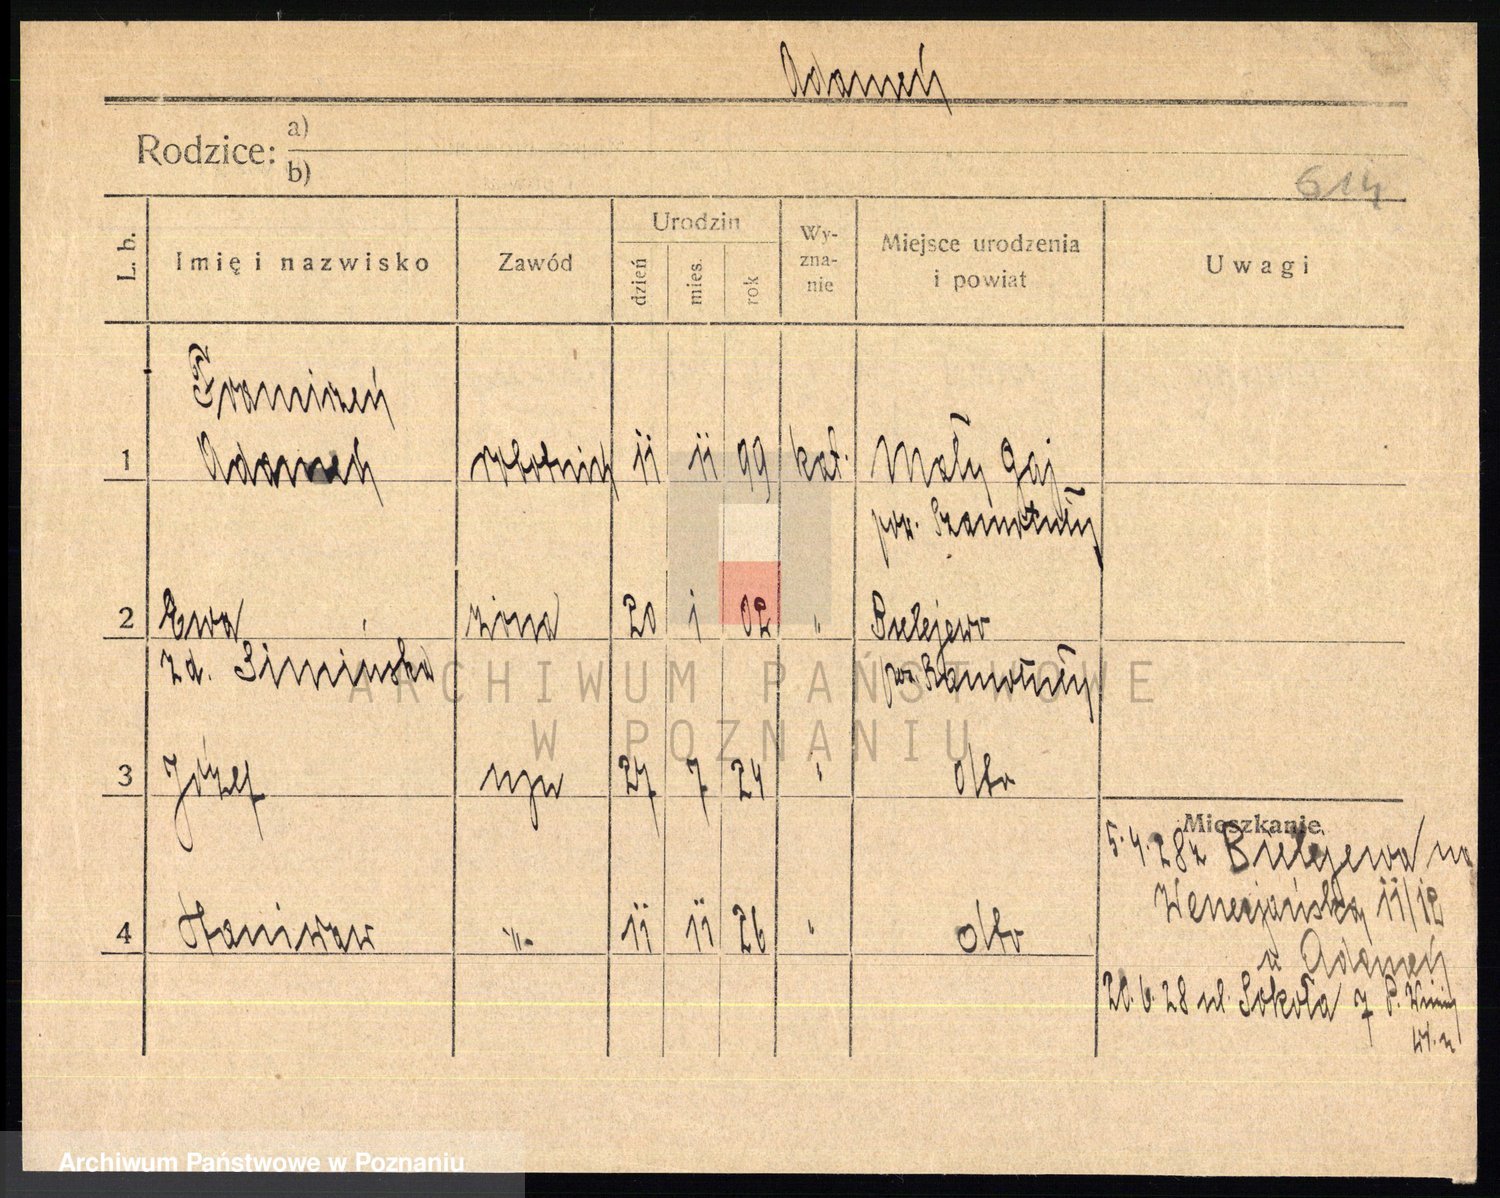 Adamek
Rodzice: a)
b)
614
L. b.
Imię i nazwisko
Zawód
Urodzin
dzień
mies.
rok
Wy-
zna-
nie
Miejsce urodzenia
i powiat
Uwagi
Franciszek
1 Adamek robotnik 11 11 99 kat. Mały Gaj
pow. Szamotuły
2 Ewa żona 20 1 02 " Bielejewo
zd. Simińska pow. Szamotuły
ARCHIWUM PAŃSTWOWE
W POZNANIU
3 Józef syn 27 7 24 " dtto
Mieszkanie
5.4.28 z Bielejewa na
4 Stanisław -"- 11 11 26 " dtto
Wenecjańska 11/12
u Adamek
20.6.28 ul. Sokoła 7
Archiwum Państwowe w Poznaniu